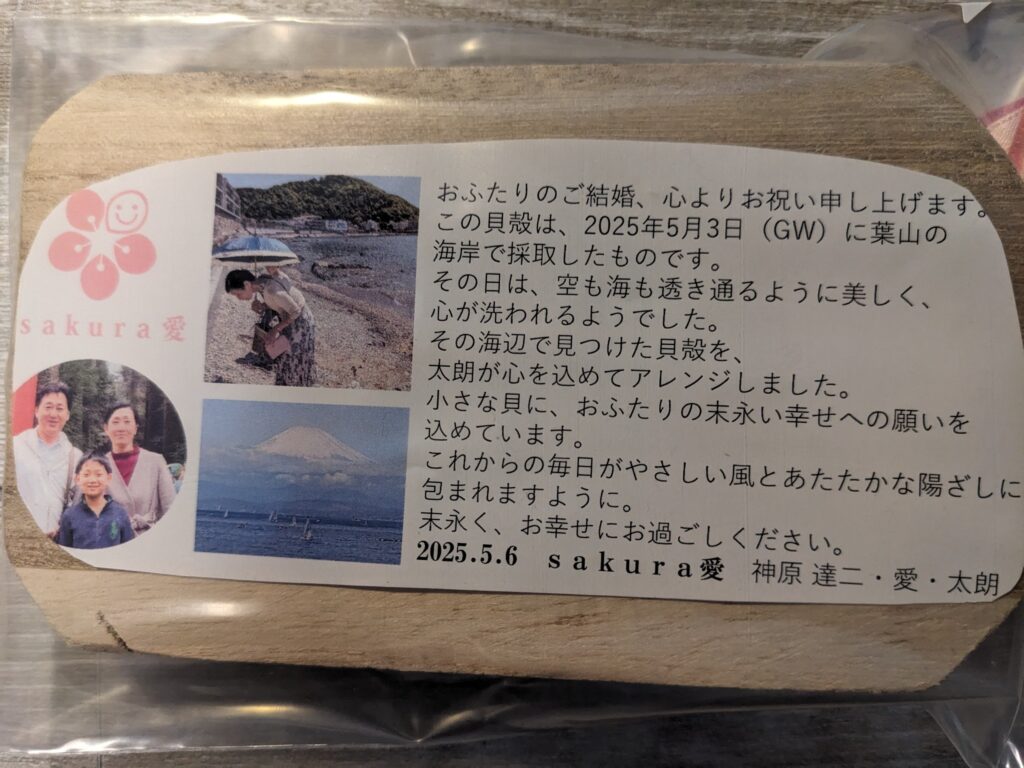 sakura愛
おふたりのご結婚、心よりお祝い申し上げます。
この貝殻は、2025年5月3日（GW）に葉山の
海岸で採取したものです。
その日は、空も海も透き通るように美しく、
心が洗われるようでした。
その海辺で見つけた貝殻を、
太朗が心を込めてアレンジしました。
小さな貝に、おふたりの末永い幸せへの願いを
込めています。
これからの毎日がやさしい風とあたたかな陽ざしに
包まれますように。
末永く、お幸せにお過ごしください。
2025.5.6 sakura愛 神原 達二・愛・太朗